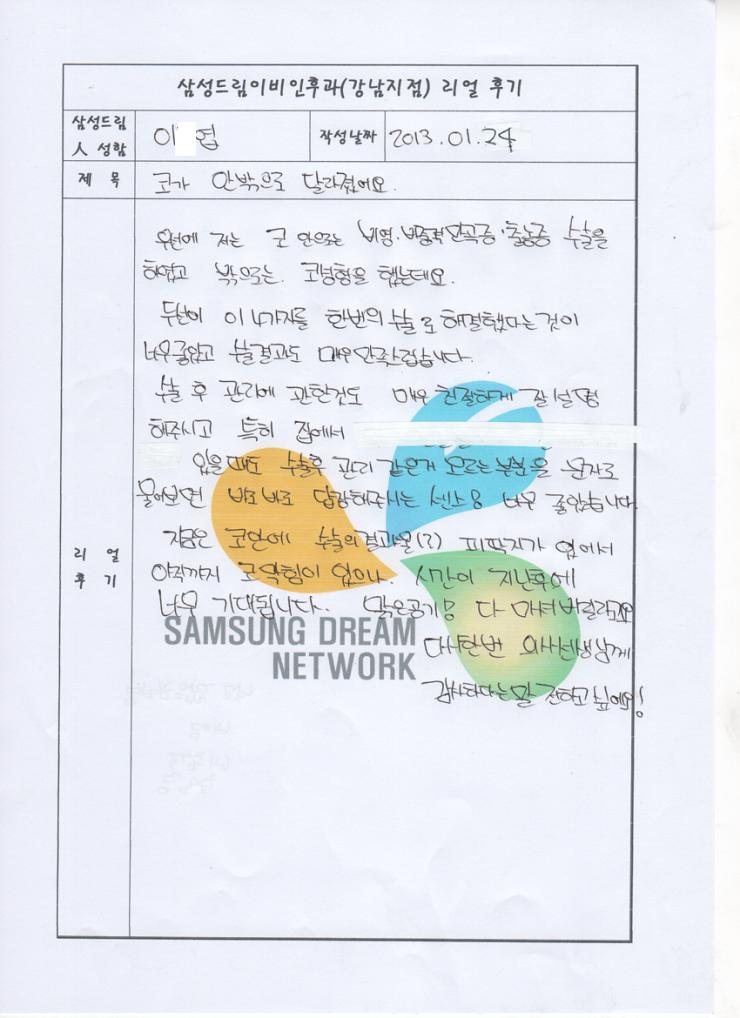 삼성드림이비인후과(강남지점) 리얼 후기
삼성드림
人 성함
이 엽
작성날짜
2013.01.24
제 목
코가 안밖으로 달라졌어요.
리 얼
후 기
우선에 저는 코 안으로는 비염·비중격만곡증·축농증 수술을
하였고 밖으로는. 코성형을 했는데요.
이 4가지를 한번의 수술로 해결했다는 것이
너무 좋았고 수술결과도 매우 만족스럽습니다.
수술 후 관리에 관한것도 매우 친절하게 잘 설명
해주시고 특히 집에서
있을때도 수술후 관리 같은거 모르는 부분을 문자로
물어보면 바로바로 답장해주시는 센스 너무 좋았습니다
지금은 코안에 수술의결과물(?) 피딱지가 있어서
아직까지 코막힘이 있으나 시간이 지난후에
너무 기대됩니다. 맑은공기 다 마셔버릴라고요
다시한번 의사선생님께
감사하다는말 전하고 싶어요!
SAMSUNG DREAM
NETWORK